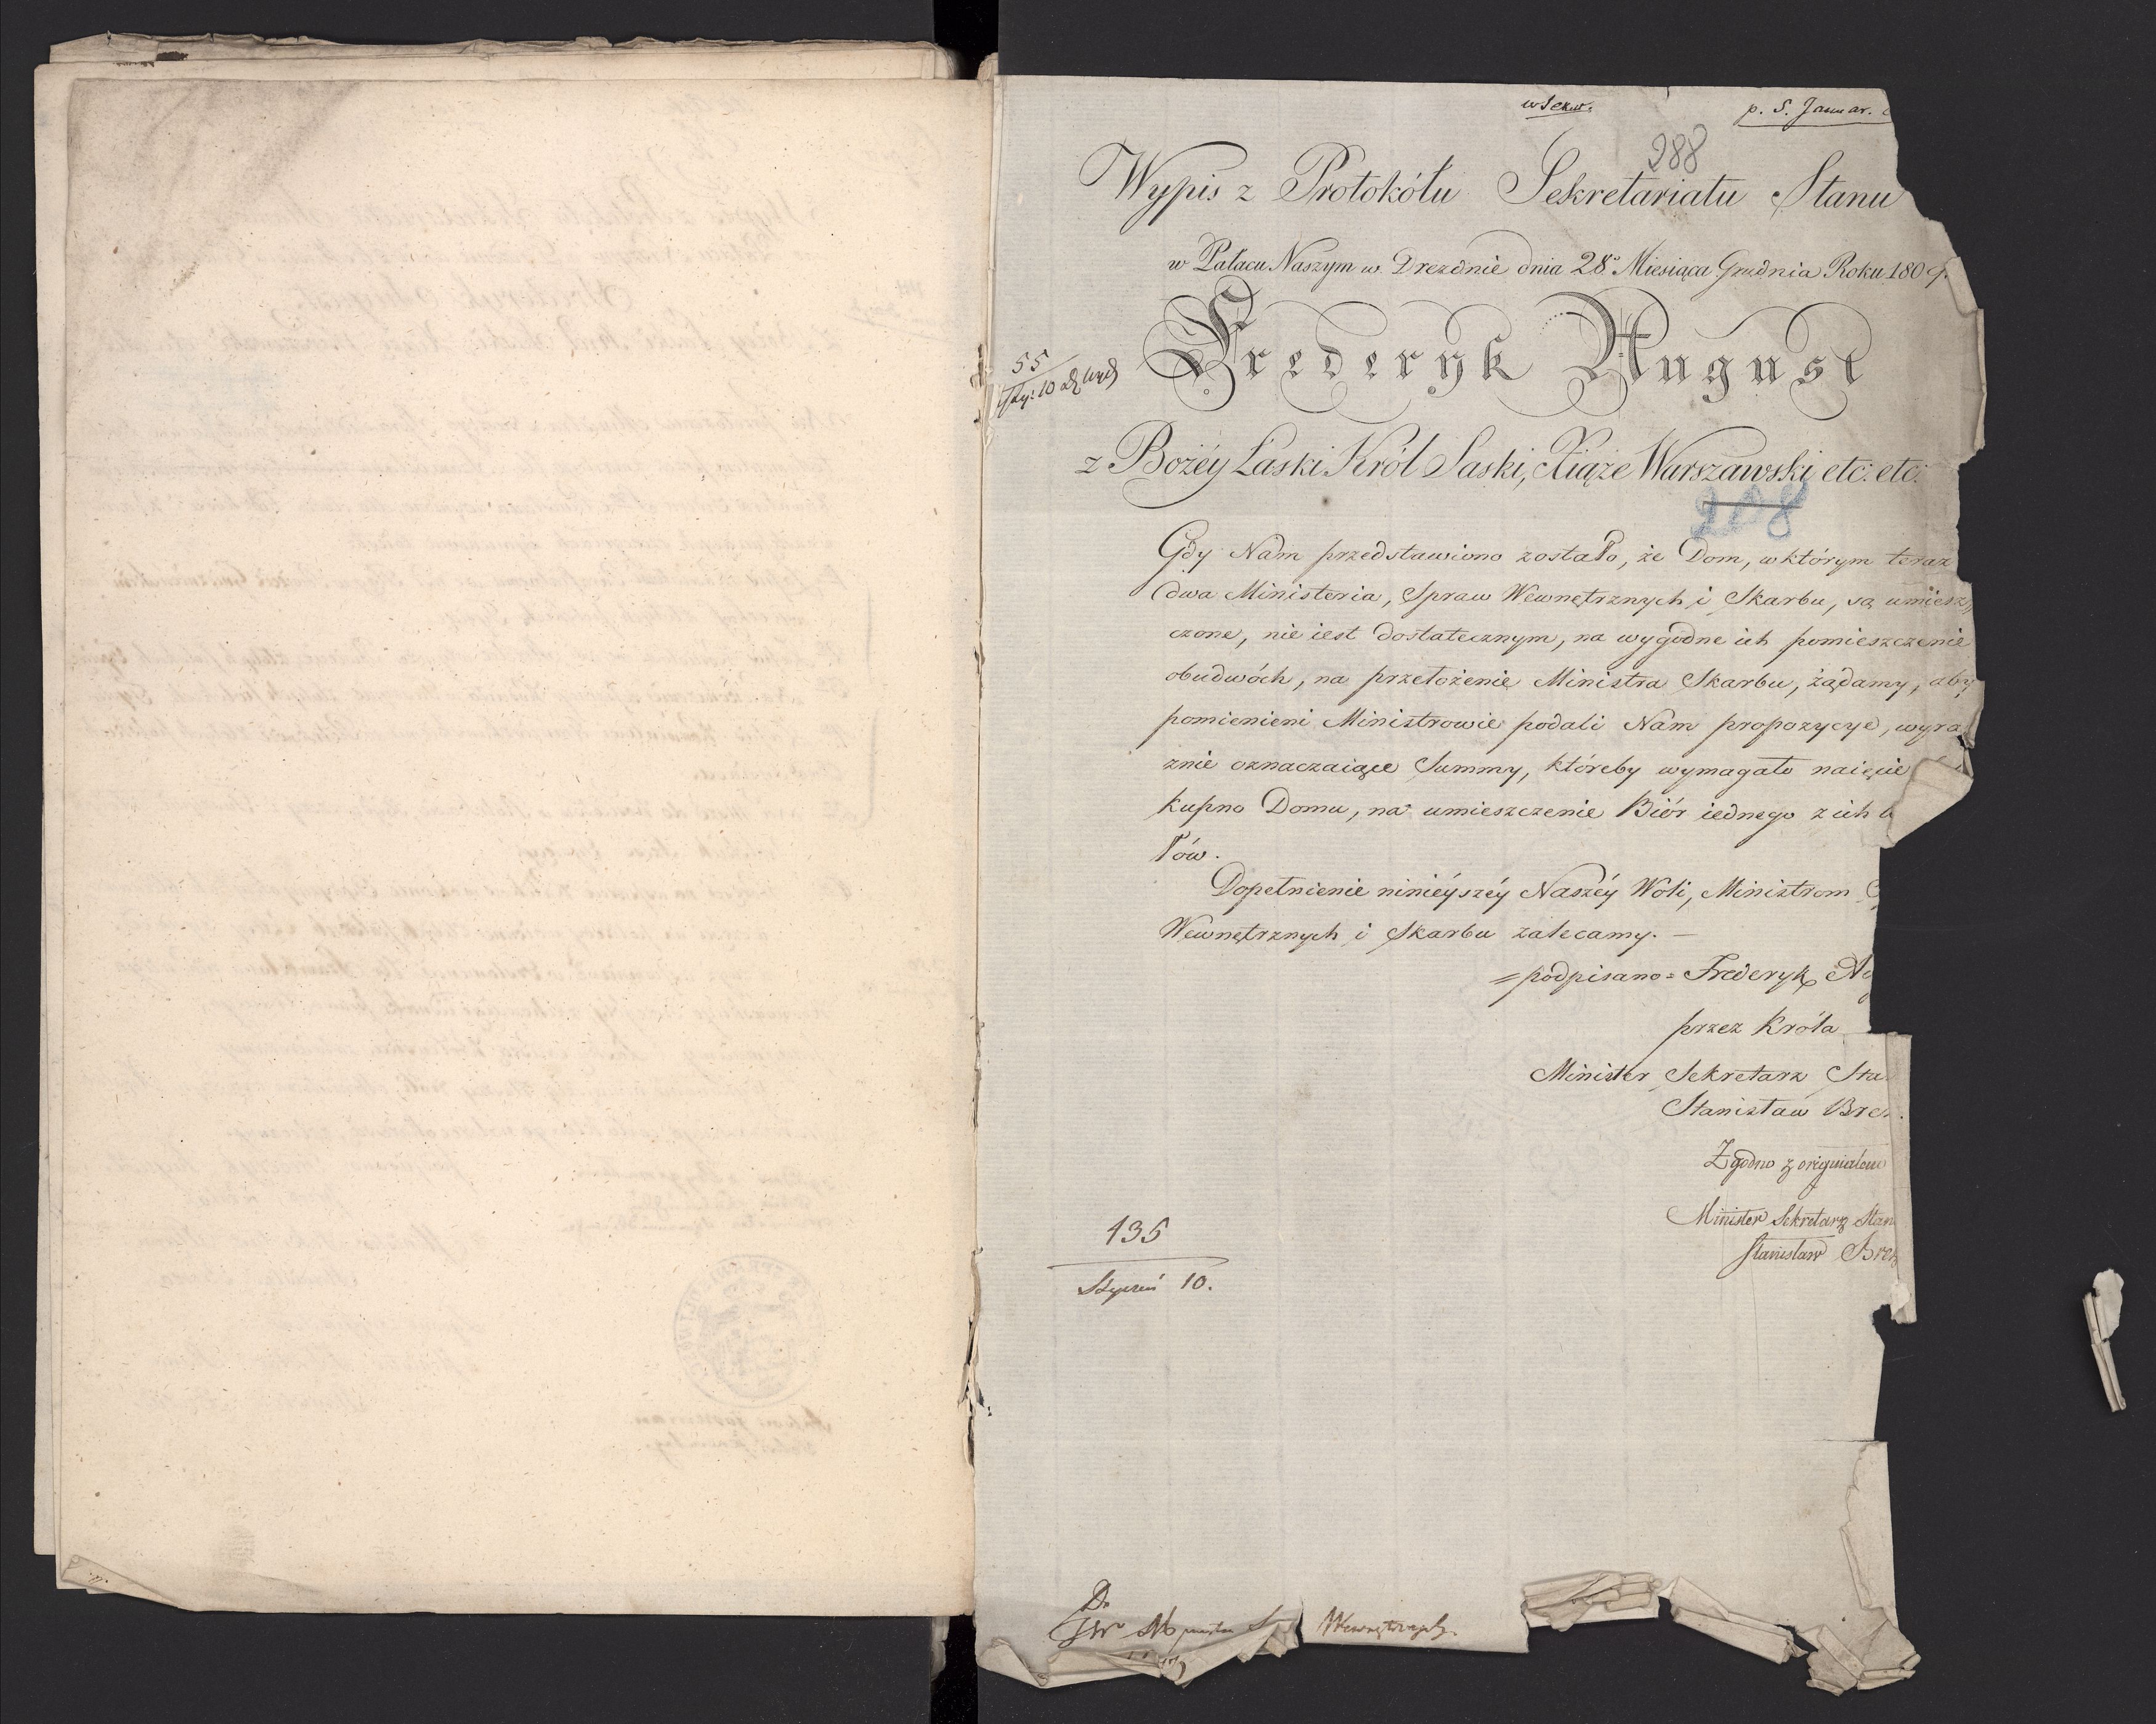 p. 5. Januar.
288
Wypis z Protokółu Sekretariatu Stanu
w Pałacu Naszym w Dreznie dnia 28º Miesiąca Grudnia Roku 1809.
55
Fryderyk August
z Bożéy Łaski Król Saski, Xiąże Warszawski etc: etc:
208
Gdy Nam przedstawiono zostało, że Dom, w którym teraz
dwa Ministeria, Spraw Wewnętrznych i Skarbu, są umiesz,
czone, nie iest dostatecznym, na wygodne ich pomieszczenie
obudwóch, na przełożenie Ministra Skarbu, żądamy, aby
pomienieni Ministrowie podali Nam propozycye, wyra
znie oznaczaiące Summy, któreby wymagało naięcie
kupno Domu, na umieszczenie Biór iednego z ich
łów.
Dopełnienie ninieyszéy Naszéy Woli, Ministrom
Wewnętrznych i Skarbu zalecamy. —
= podpisano = Frederyk Au
przez Króla
Minister Sekretarz Sta
Stanisław Bre
Zgodno z originałem
Minister Sekretarz Stan
Stanisław Bre
135
Styczeń 10.
Do
JW Ministra Wewnętrznych.